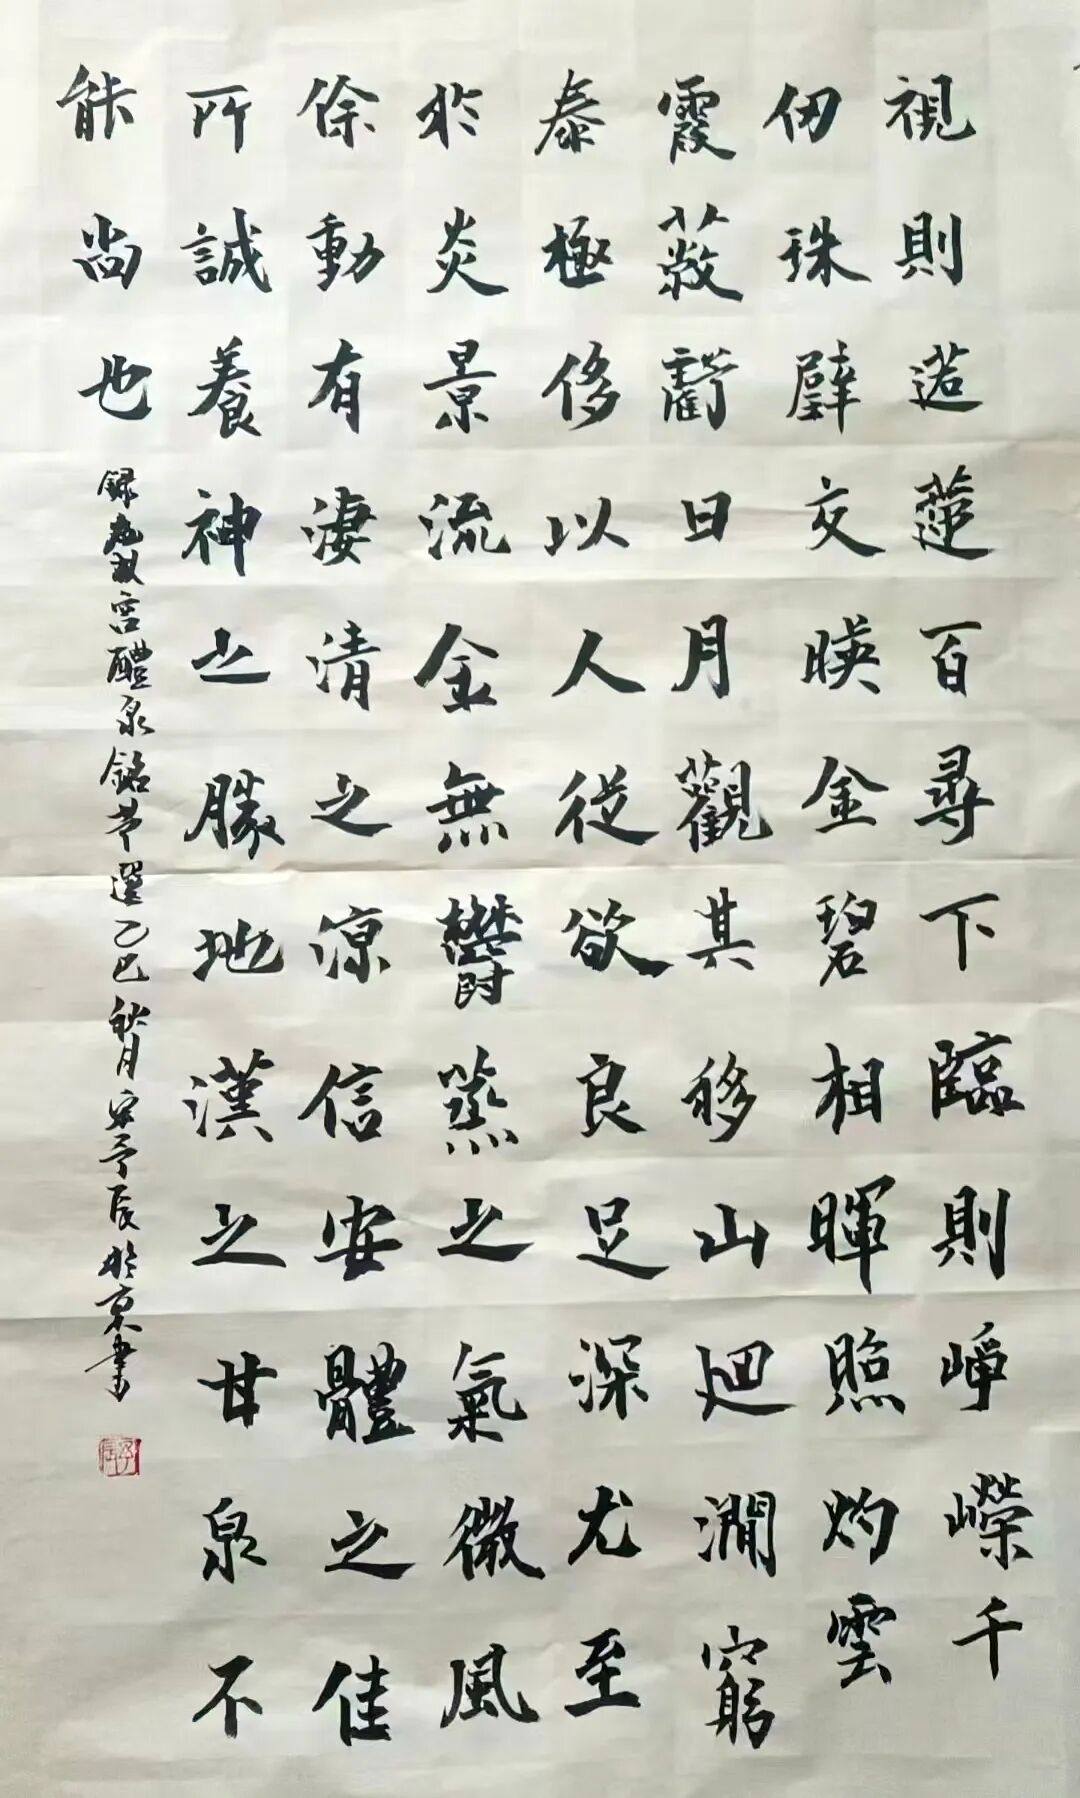 視則迢遰百尋下臨則崢嶸千
仞珠壁交暎金碧相暉照灼雲
霞蔽虧日月觀其移山迴澗窮
泰極侈以人從欲良足深尤至
於炎景流金無鬱蒸之氣微風
徐動有淒清之涼信安體之佳
所誠養神之勝地漢之甘泉不
能尚也
錄九成宮醴泉銘節選乙巳秋月宋予辰於京書